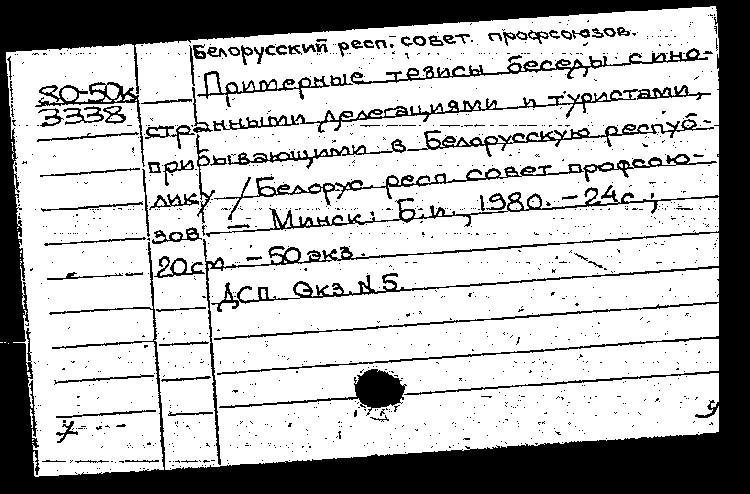 Белорусский респ. совет. профсоюзов.
80-50к
3338
Примерные тезисы беседы с ино-
странными делегациями и туристами,
прибывающими в Белорусскую респуб-
лику / Белорус. респ. совет профсою-
зов. - Минск: Б.и., 1980. - 24с.;
20см. - 50 экз.
ДСП. Экз. N 5.